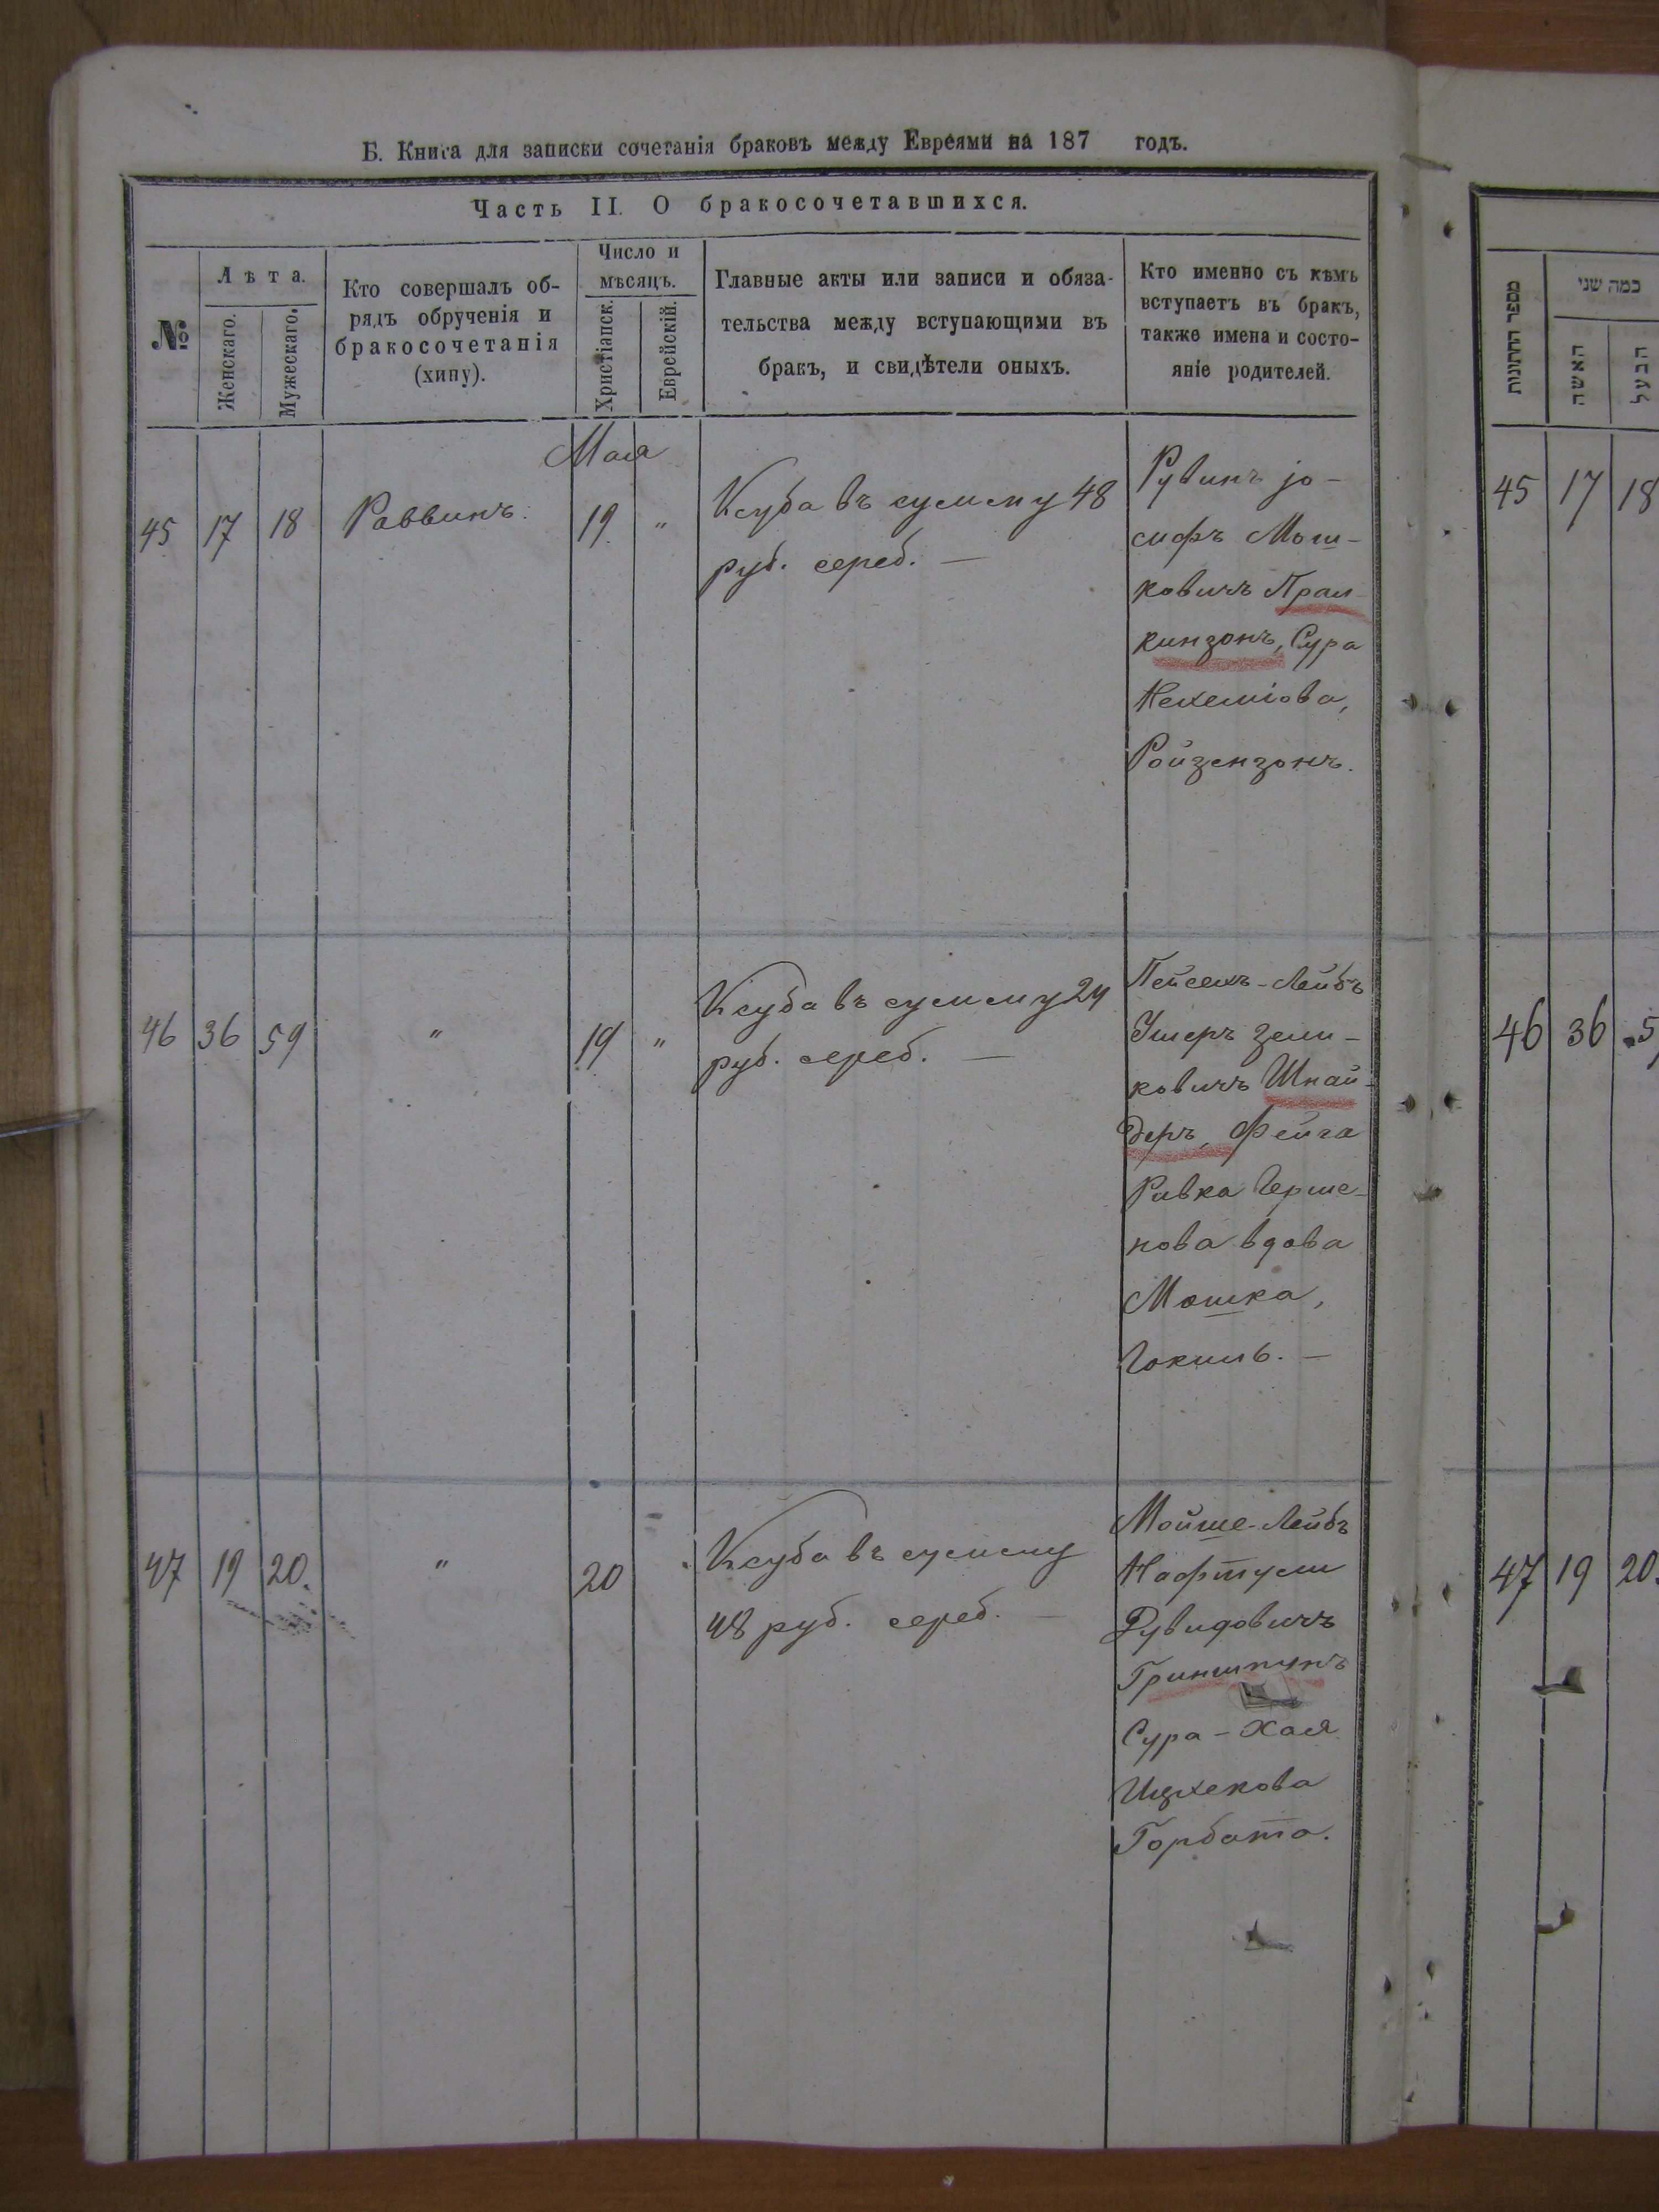 Б. Книга для записки сочетанія браковъ между Евреями на 187 годъ.
Часть II. О бракосочетавшихся.
№
Лѣта.
Женскаго.
Мужескаго.
Кто совершалъ об-
рядъ обрученія и
бракосочетанія
(хипу).
Число и
мѣсяцъ.
Христіанск.
Еврейскій.
Главные акты или записи и обяза-
тельства между вступающими въ
бракъ, и свидѣтели оныхъ.
Кто именно съ кѣмъ
вступаетъ въ бракъ,
также имена и состо-
яніе родителей.
Мая
45 17 18 Раввинъ. 19 "
Ксуба въ сумму 48
руб. сереб. —
Рувинъ Jо-
сифъ Мош-
ковичъ Прай-
кинзонъ, Сура
Нехеміова,
Ройзензонъ.
46 36 59 " 19 "
Ксуба въ сумму 24
руб. сереб. —
Пейсехъ-Лейбъ
Ушеръ Зели-
ковичъ Шнай-
деръ, Фейга
Ривка Герше-
нова вдова
Мошка,
47 19 20. " 20
Ксуба въ сумму
48 руб. сереб. —
Мойше-Лейбъ
Нафтули
Дувидовичъ
Гриншпунъ
Сура-Хая
Ицхекова
Горбата.
מספר החתונות
כמה שני
האשה
הבעל
45 17 18
46 36 5
47 19 20.